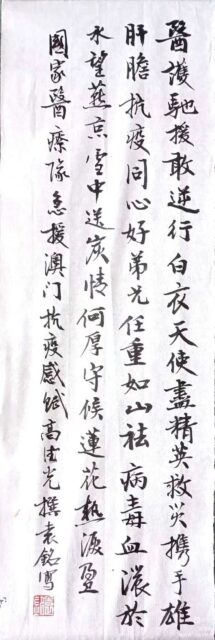 醫護馳援敢逆行白衣天使盡精英救災携手雄
肝膽抗疫同心好弟兄任重如山祛病毒血濃於
水望燕京雪中送炭情何厚守候蓮花熱淚盈
國家醫療隊急援澳门抗疫感賦高光撰袁銘寫